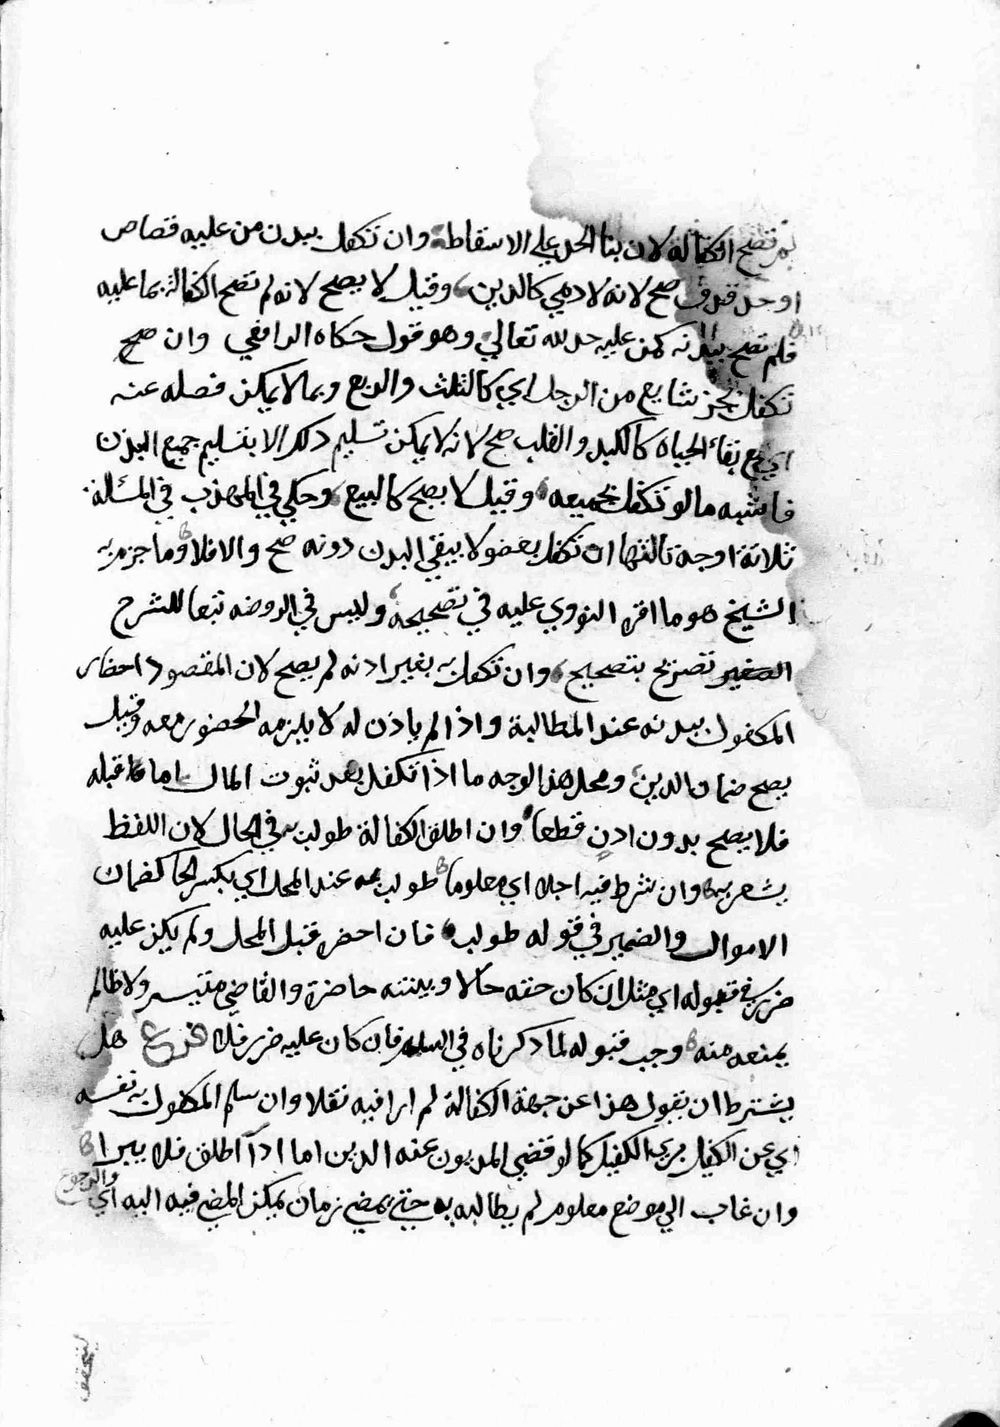 لم تصح الكفالة لان بنا الحد علي الاسقاط وان تكفل ببدن من عليه قصاص
او حد قذف صح لانه لادمي كالدين وقيل لا يصح لانه لم تصح الكفالة بما عليه
فلم تصح ببدنه كمن عليه حد لله تعالي وهو قول حكاه الرافعي وان صح
تكفل بجزء شايع من الرجل اي كالثلث والربع وبما لا يمكن فصله عنه
اي مع بقاء الحياه كالكبد والقلب صح لانه لا يمكن تسليم ذلك الا بتسليم جميع البدن
فاشبه ما لو تكفل بجميعه وقيل لا يصح كالبيع وحكي في المهذب في المسئلة
ثلاثة اوجه ثالثها ان تكفل بعضو لا يبقي البدن دونه صح والا فلا وما جزم به
الشيخ هو ما اقره النووي عليه في تصحيحه وليس في الروضه تبعا للشرح
الصغير تصريح بتصحيح وان تكفل به بغير اذنه لم يصح لان المقصود احضار
المكفول ببدنه عند المطالبة واذا لم ياذن له لا يلزمه الحضور معه وقيل
يصح ضمان الدين ومحل هذا الوجه ما اذا تكفل بعد ثبوت المال اما قبله
فلا يصح بدون اذن قطعا وان اطلق الكفالة طولب به في الحال لان اللفظ
يشعر به وان شرط فيه اجلا اي معلوما طولب به عند المحل اي بكسر الحا كضمان
الاموال والضمير في قوله طولب فان احضره قبل المحل ولم يكن عليه
ضرر في قبوله اي مثل ان كان حقه حالا وبينته حاضرة والقاضي متيسر ولا ظالم
يمنعه منه وجب قبوله لما ذكرناه في السلم فان كان عليه ضرر فلا فرع هل
يشترط ان يقول هذا عن جهة الكفالة لم ار فيه نقلا وان سلم المكفول به نفسه
اي عن الكفيل بري الكفيل كما لو قضي المديون عنه الدين اما اذا اطلق فلا يبرا
وان غاب الي موضع معلوم لم يطالبه به حتي يمضي زمان يمكن المضي فيه اليه اي
والرجوع